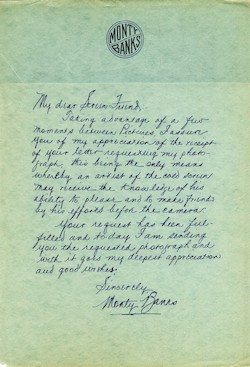 MONTY
BANKS
My dear Screen Friend:
Taking advantage of a few
moments between Pictures, I assure
you of my appreciation of the receipt
of your letter requesting my photo-
graph, this being the only means
whereby an artist of the cold screen
may receive the knowledge of his
ability to please and to make friends
by his efforts before the camera
Your request has been ful-
filled and to-day I am sending
you the requested photograph and
with it goes my deepest appreciation
and good wishes.
Sincerely
Monty Banks